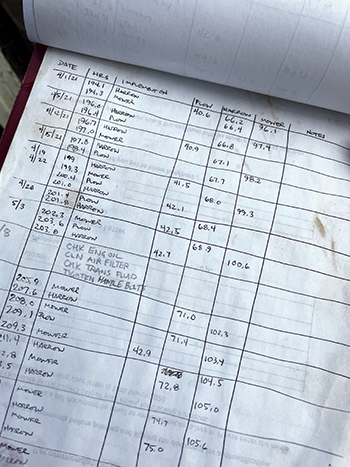 DATE HRS IMPLEMENT PLOW HARROW MOWER NOTES
4/1/21 194.1 HARROW 40.6 66.2 96.1
194.3 MOWER 66.4
4/5/21 196.0 HARROW
196.4 PLOW 40.9 66.8 97.4
4/12/21 196.7 HARROW
197.0 MOWER 67.1
4/15/21 197.8 HARROW
198.4 PLOW 41.5 67.7 98.2
4/19 199 HARROW
4/22 199.3 MOWER 68.0
200.4 PLOW 42.1 99.3
201.0 HARROW
4/28 201.4 PLOW 42.5 68.4
201.8 HARROW
5/3 202.3 MOWER 68.9
203.6 PLOW 42.7 100.6
203.8 HARROW
CHK ENG OIL
CLN AIR FILTER
CHK TRANS FLUID
TIGTEN HANDLE BOLTS
205.9 MOWER 71.0
207.6 HARROW 102.3
208.0 MOWER 71.4
209.1 PLOW 103.4
209.3 MOWER 42.9
HARROW 104.5
MOWER 72.8
HARROW 105.0
MOWER
HARROW 74.7
MOWER 105.6
HARROW 75.0
MOWER